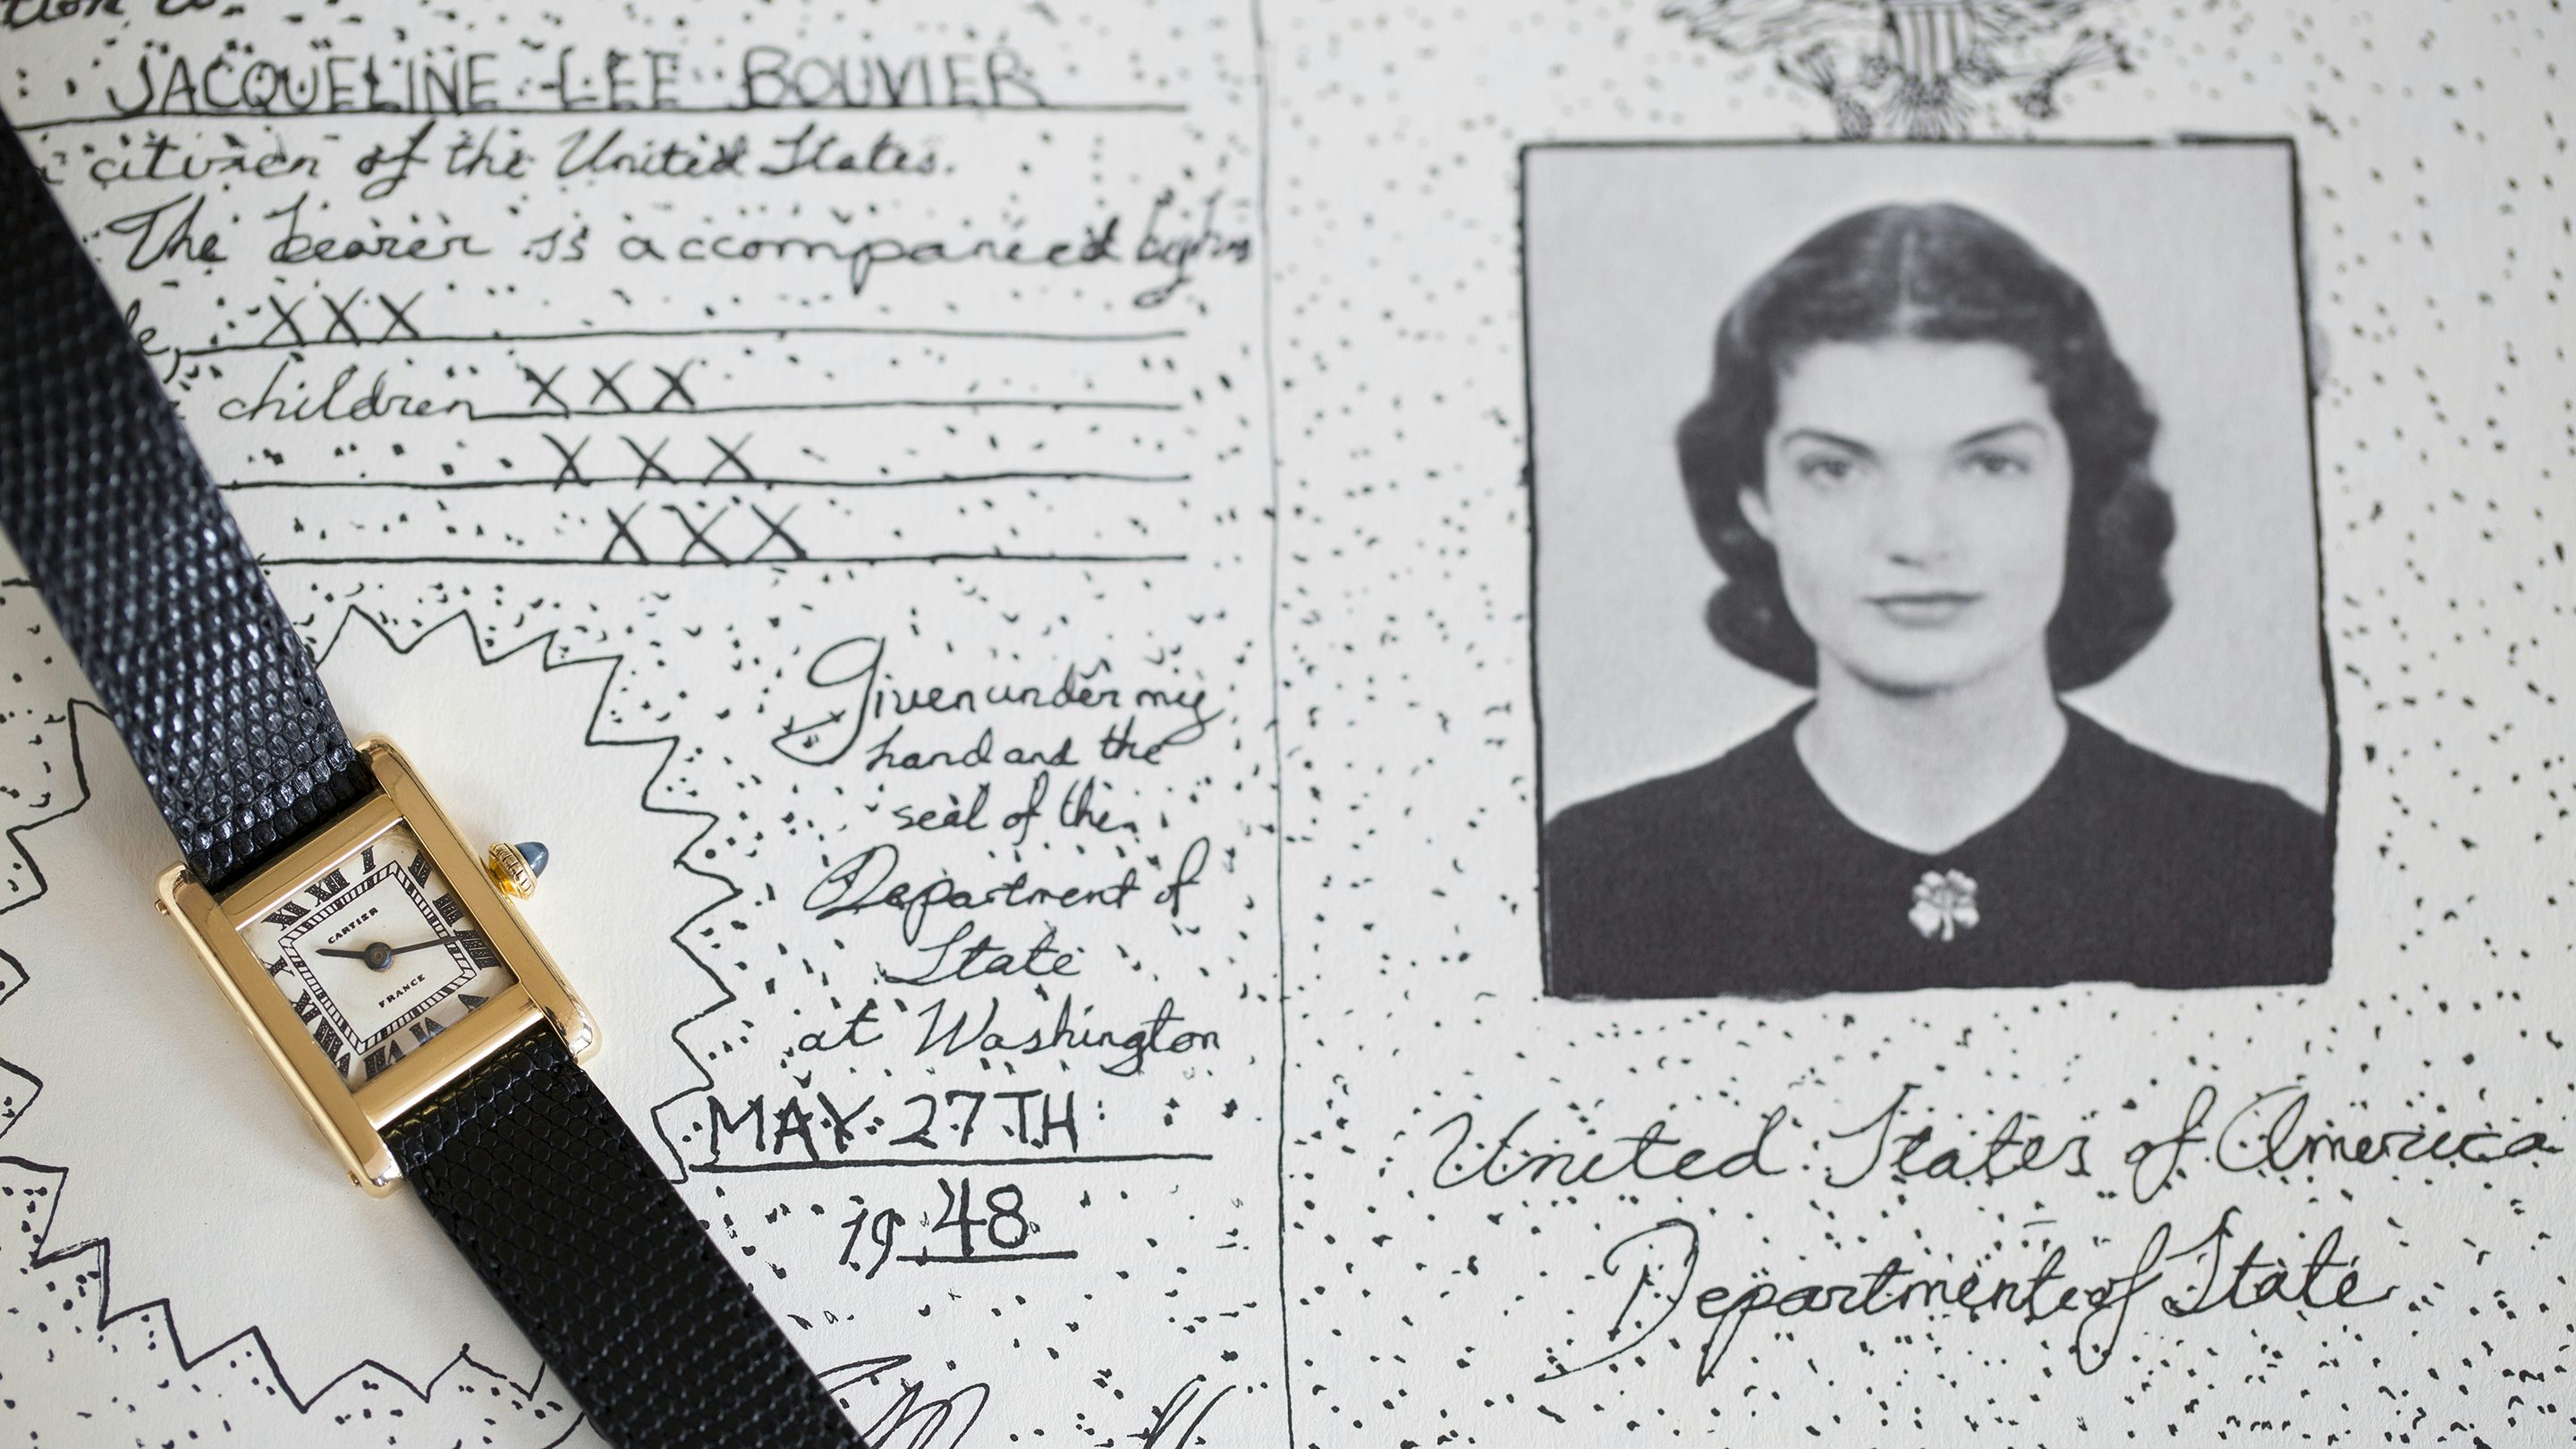 JACQUELINE LEE BOUVIER
a citizen of the United States.
The bearer is accompanied by his
XXX
children XXX
XXX
XXX
Given under my
hand and the
seal of the
Department of
State
at Washington
MAY 27TH
19 48
United States of America
Department of State
CARTIER
FRANCE
XII I II III IIII V VI VII VIII IX X XI